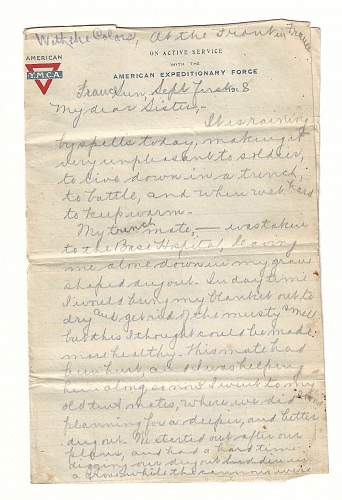 With the Colors, At the Front in France
AMERICAN
Y.M.C.A.
ON ACTIVE SERVICE
WITH THE
AMERICAN EXPEDITIONARY FORCE
France Sept first 1918
My dear Sister,-
It is raining
by spells today, making it
very unpleasant to soldier,
to live down in a trench,
to battle, and when wet hard
to keep warm.
My trench mate, — was taken
to the Base Hospital, leaving
me alone down in my grave
shaped dugout. In day time
I would hang my blanket out to
dry and get rid of the musty smell
but this I thought could be made
more healthy. This mate had
been hurt, and I was helping
him along, so now I went to my
old tent mates, where we did
planning for a deeper, and better
dugout. We started out after our
plans, and had a hard time
digging our dugout
a while the common